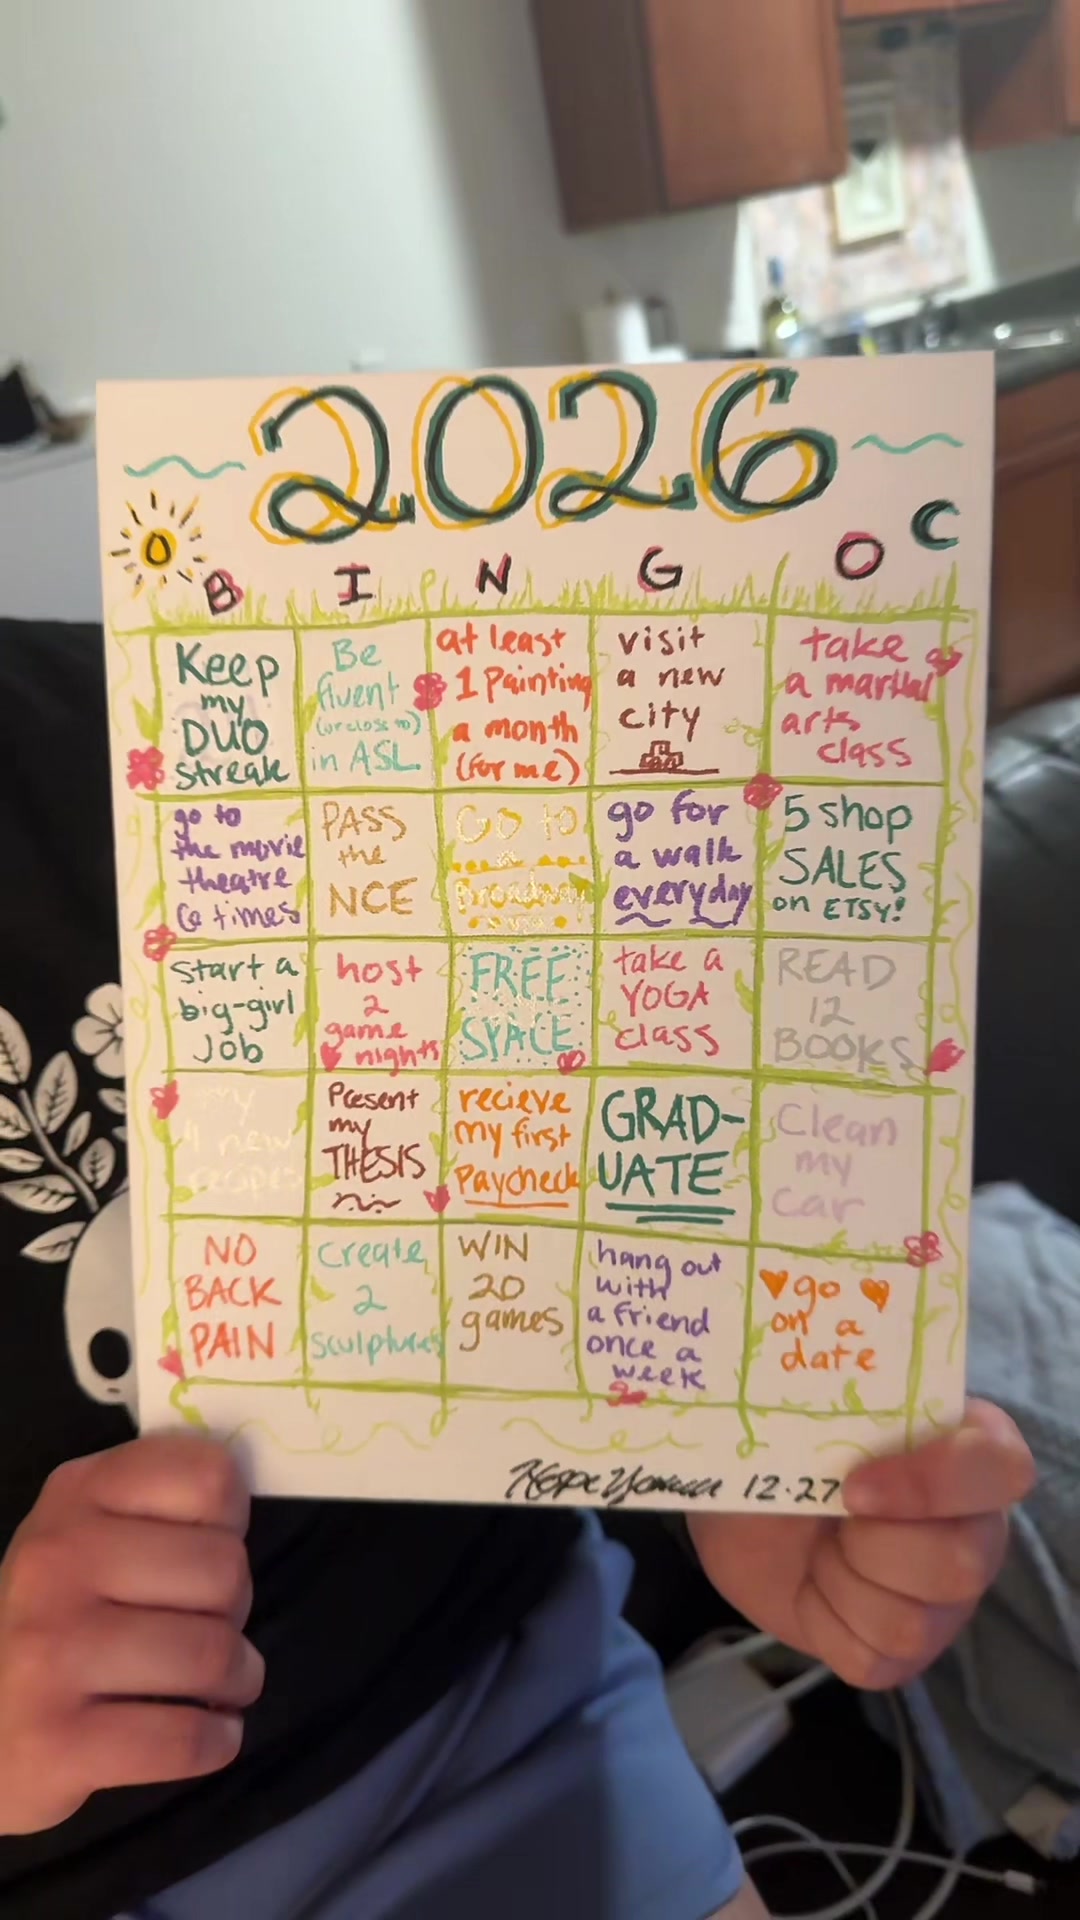 2026
B I N G O
Keep
my
DUO
streak
Be
fluent
(or close to)
in ASL
at least
1 Painting
a month
(for me)
visit
a new
city
take
a martial
arts
class
go to
the movie
theatre
6 times
PASS
the
NCE
GO to
Broadway
go for
a walk
everyday
5 shop
SALES
on ETSY!
start a
big-girl
Job
host
2
game
nights
FREE
SPACE
take a
YOGA
class
READ
12
BOOKS
4 new
recipes
Present
my
THESIS
recieve
my first
Paycheck
GRAD-
UATE
Clean
my
car
NO
BACK
PAIN
create
2
sculptures
WIN
20
games
hang out
with
a friend
once a
week
go
on a
date
12.27